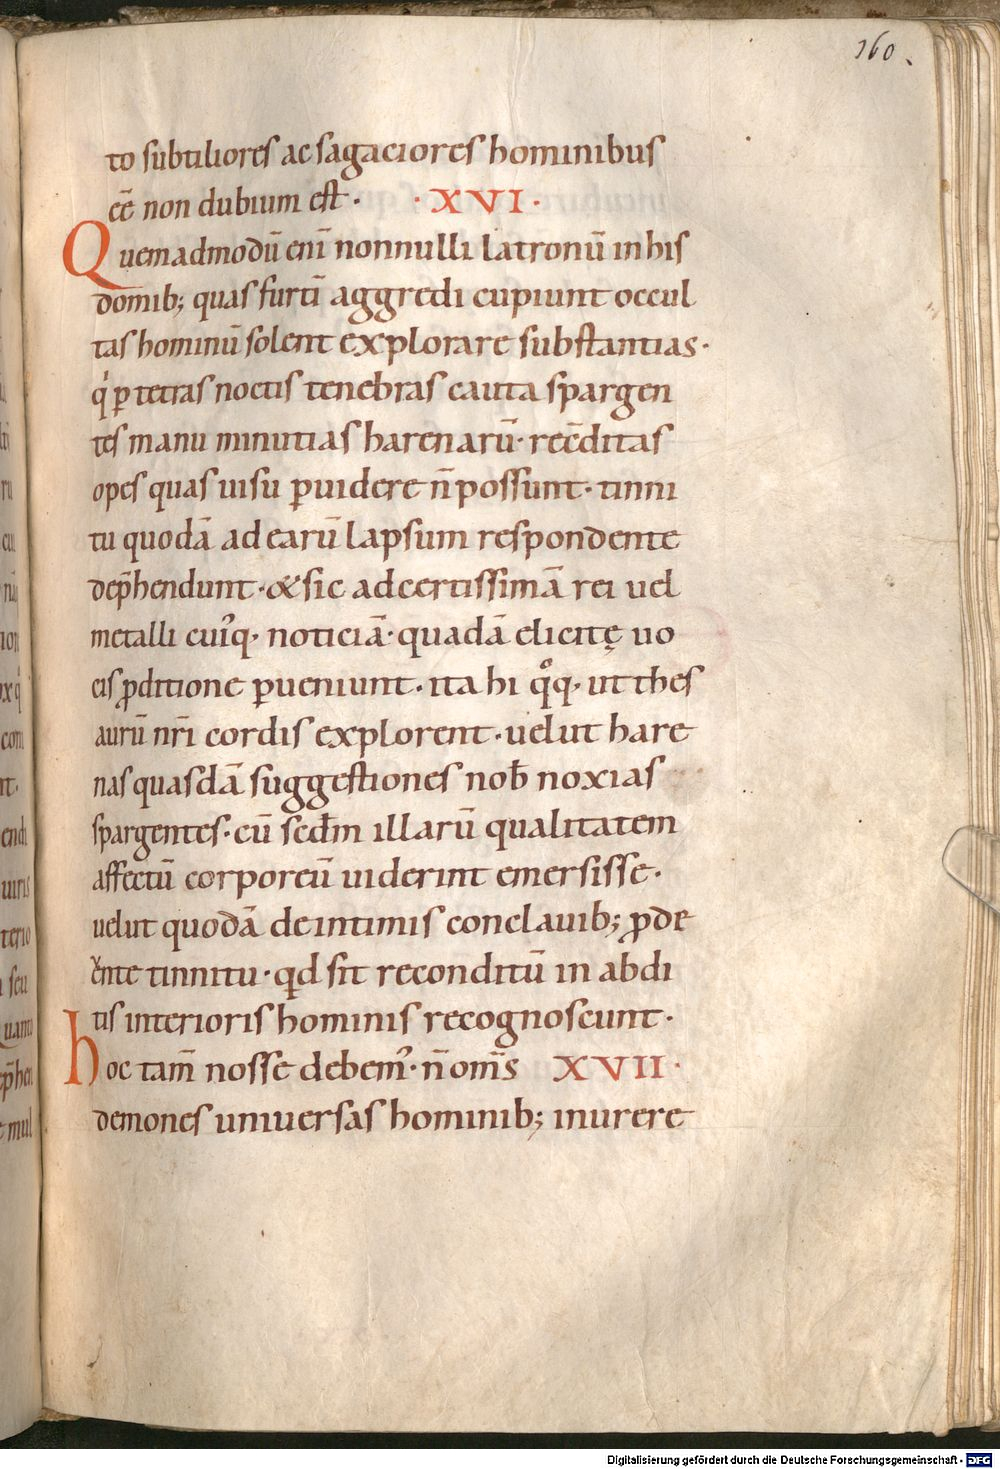 160.
to subtiliores ac sagaciores hominibus
eē non dubium est · · XVI ·
Quemadmodū enī nonnulli latronū in his
domib; quas furtī aggredi cupiunt occul
tas hominū solent explorare substantias ·
q' ꝑ tetras noctis tenebras cauta spargen
tes manu minutias harenarū · recōditas
opes quas uisu ꝑuidere n̄ possunt · tinni
tu quodā ad earū lapsum respondente
dep̄hendunt · & sic ad certissimā rei uel
metalli cui'q· noticiā · quadā elicitę uo
cis ꝓditione ꝑueniunt · ita hi q°q· ut thes
aurū nr̄i cordis explorent · uelut hare
nas quasdā suggestiones nob̄ noxias
spargentes · cū scd̄m illarū qualitatem
affectū corporeū uiderint emersisse ·
uelut quodā de intimis conclauib; ꝓde
unte tinnitu · qd̄ sit reconditū in abdi
tis interioris hominis recognoscunt ·
hoc tam̄ nosse debem' · n̄ om̄s XVII ·
demones uniuersas hominib; inurere
Digitalisierung gefördert durch die Deutsche Forschungsgemeinschaft - DFG